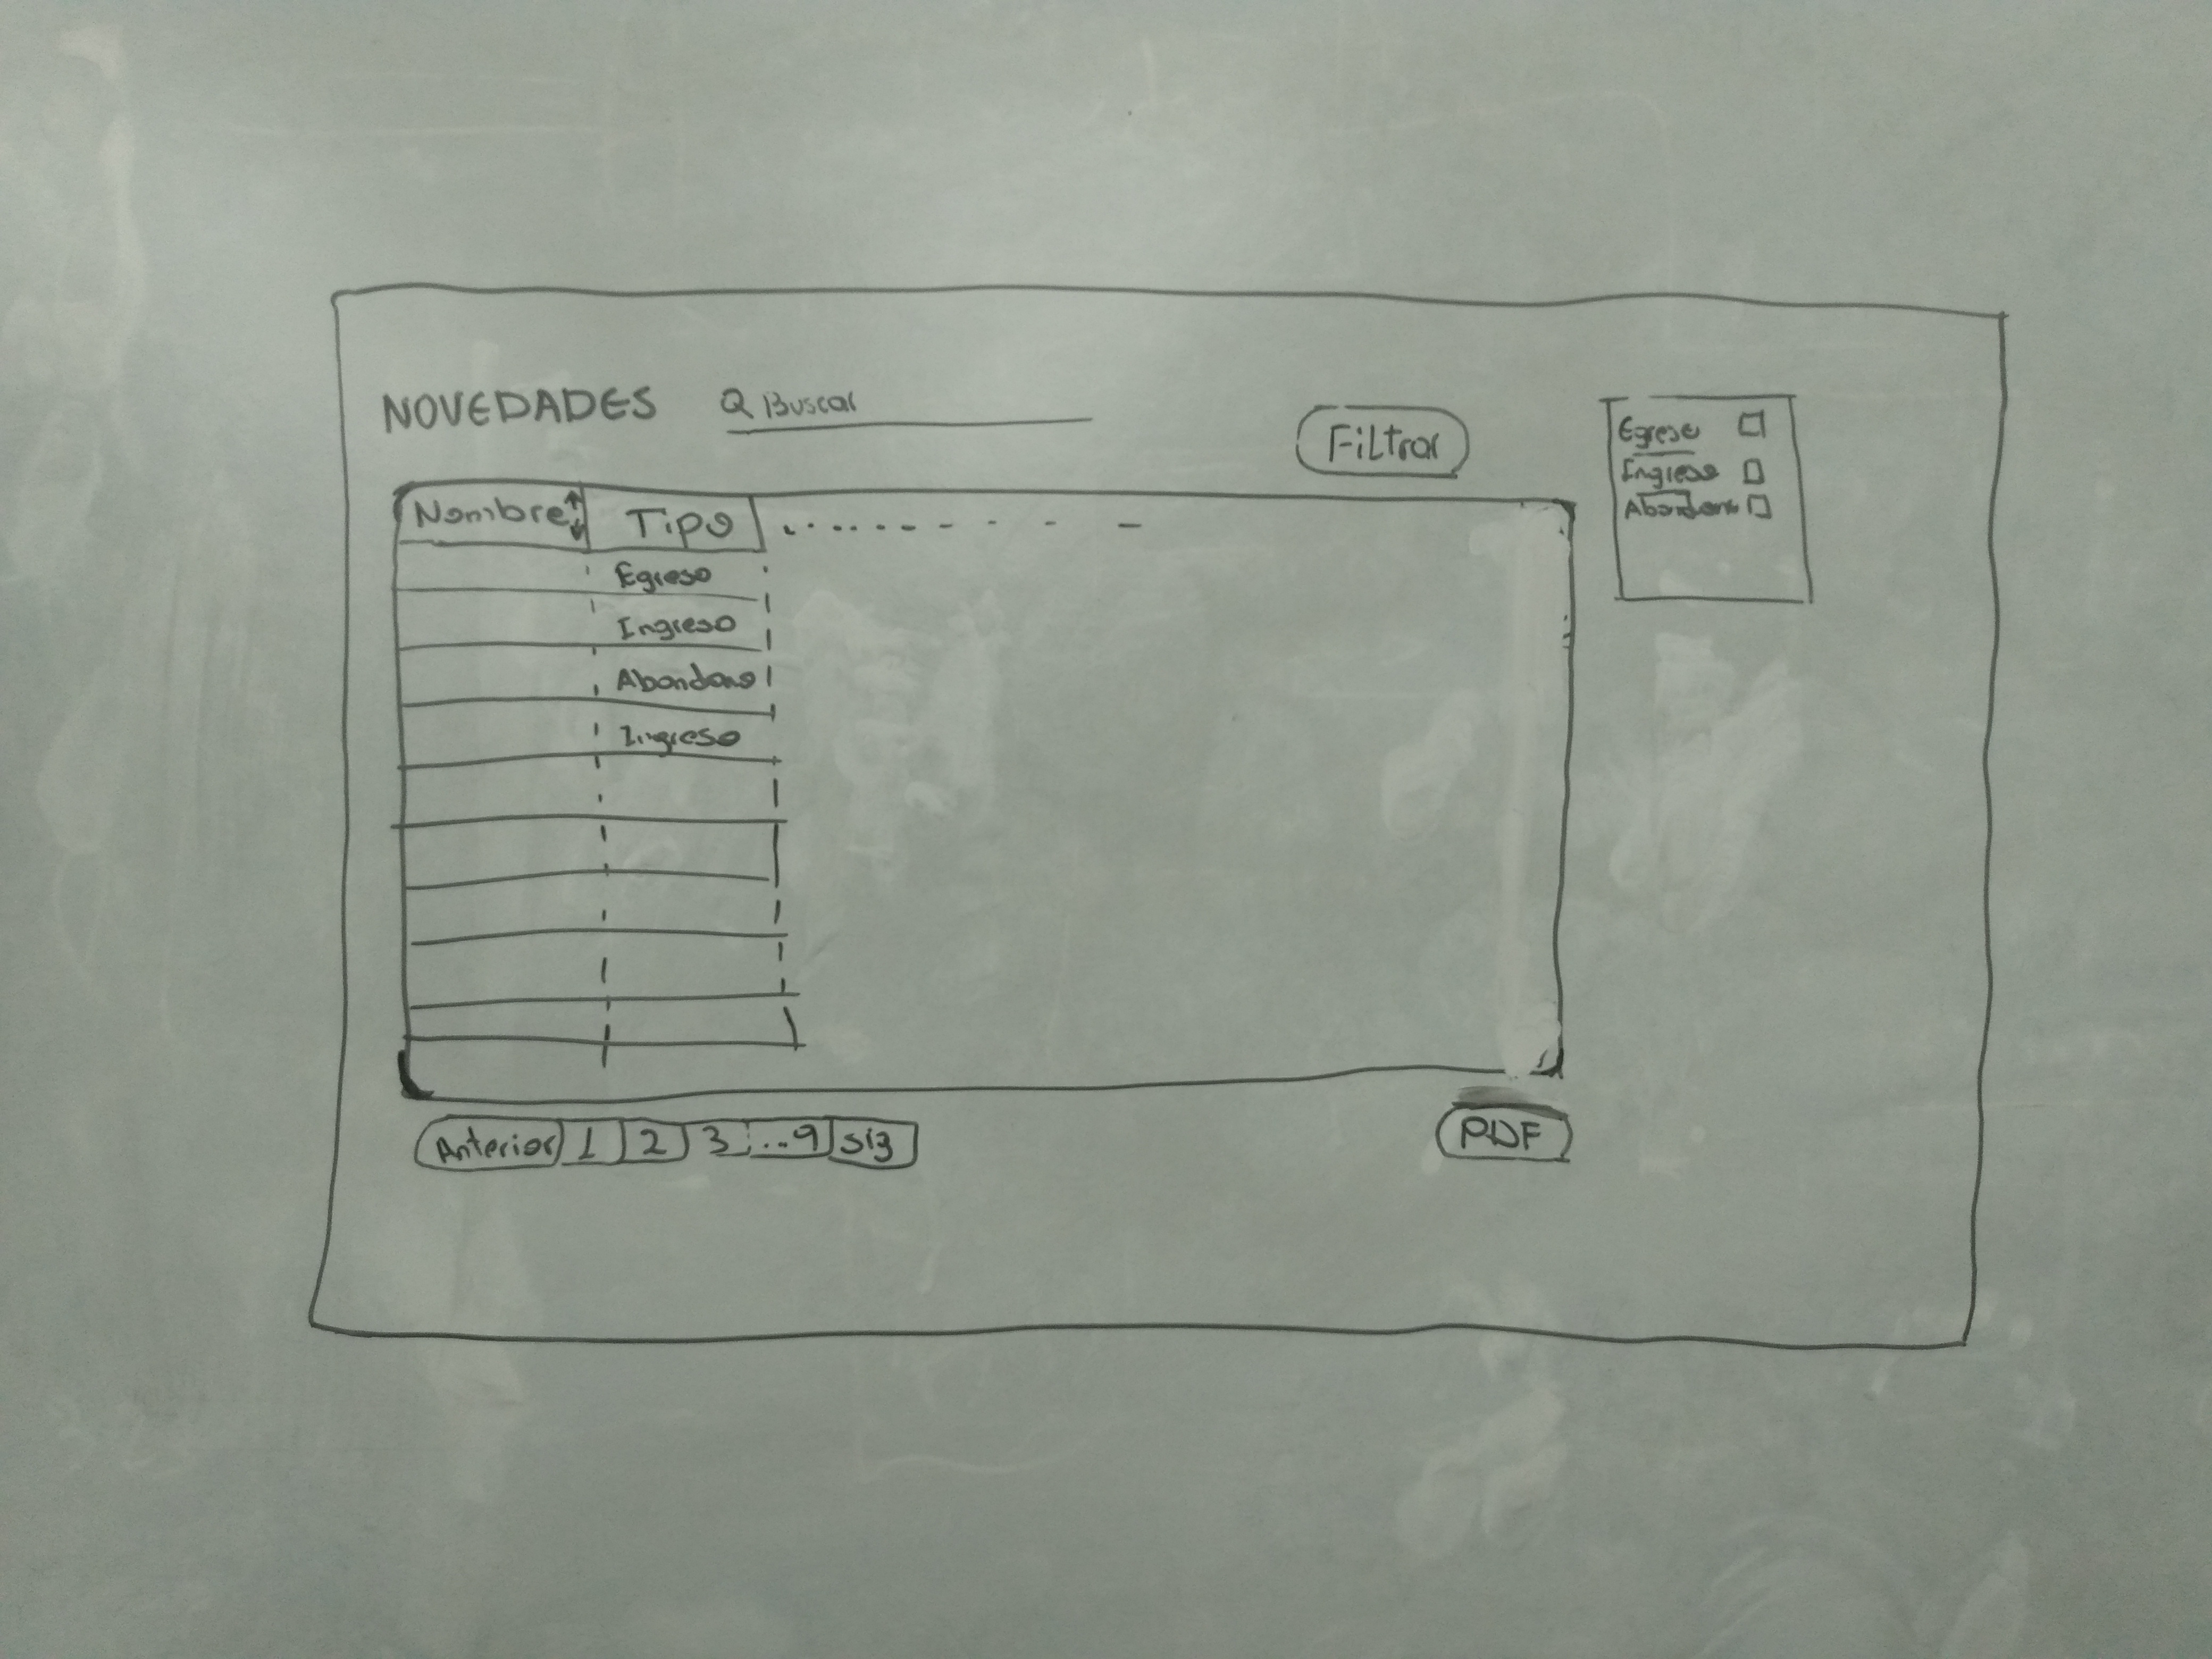 NOVEDADES
Buscar
Filtrar
Egreso
Ingreso
Abandono
Nombre Tipo
Egreso
Ingreso
Abandono
Ingreso
Anterior 1 2 3 ...9 sig
PDF